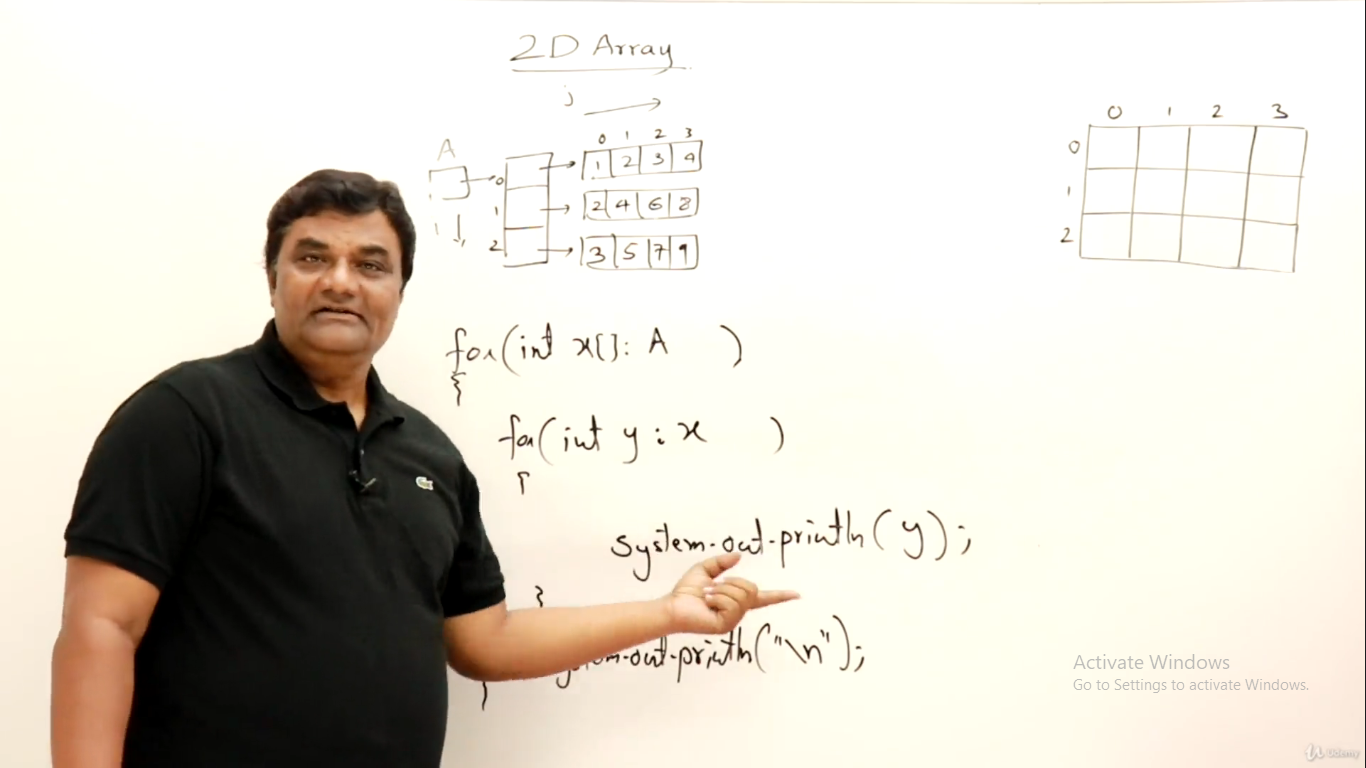 2D Array
j
A
0 1 2 3
0 1 2 3 4
1 2 4 6 8
2 3 5 7 9
0 1 2 3
0
1
2
for(int x[]: A )
{
for(int y : x )
{
system.out.println(y);
}
out.println("\n");
}
Activate Windows
Go to Settings to activate Windows.
Udemy